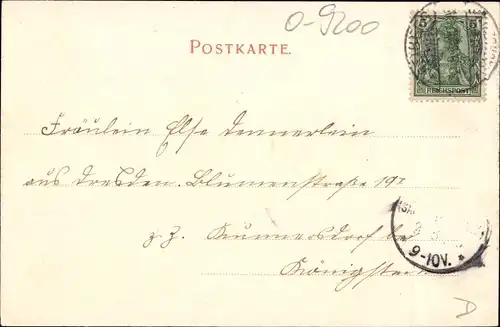 O-9200
POSTKARTE.
5 5
REICHSPOST
Fräulein Else Dennerlein
aus Dresden. Blumenstraße 19I
z. Z. Kunnersdorf bei
Königstein
9-10V. *
D